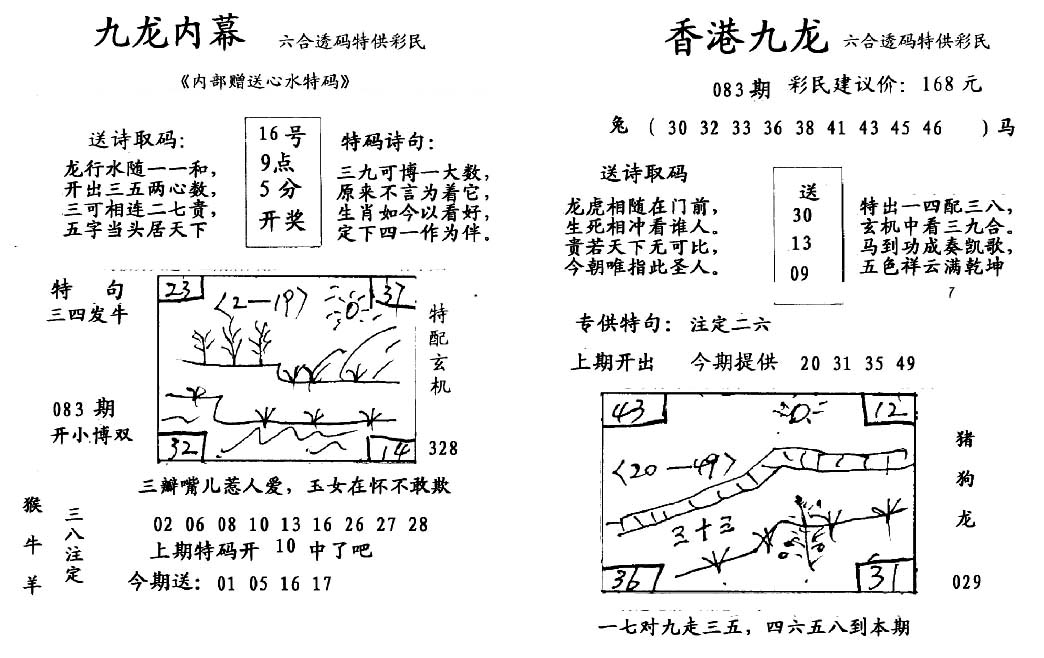 九龙内幕 六合透码特供彩民
《内部赠送心水特码》
送诗取码：
龙行水随一一和，
开出三五两心数，
三可相连二七贵，
五字当头居天下
16号
9点
5分
开奖
特码诗句：
三九可博一大数，
原来不言为着它，
生肖如今以看好，
定下四一作为伴。
特 句
三四发牛
083期
开小博双
23
37
〈2—19〉
32
14
特配玄机
328
三瓣嘴儿惹人爱，玉女在怀不敢欺
猴牛羊
三八注定
02 06 08 10 13 16 26 27 28
上期特码开 10 中了吧
今期送：01 05 16 17
香港九龙 六合透码特供彩民
083期 彩民建议价：168元
兔 （30 32 33 36 38 41 43 45 46 ）马
送诗取码
龙虎相随在门前，
生死相冲看谁人。
贵若天下无可比，
今朝唯指此圣人。
送
30
13
09
特出一四配三八，
玄机中看三九合。
马到功成奏凯歌，
五色祥云满乾坤
7
专供特句：注定二六
上期开出 今期提供 20 31 35 49
43
12
〈20—49〉
三十三
36
31
猪狗龙
029
一七对九走三五，四六五八到本期